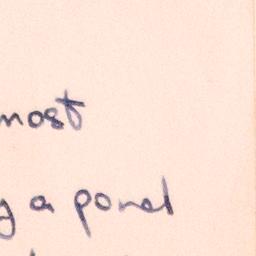 most
y a panel